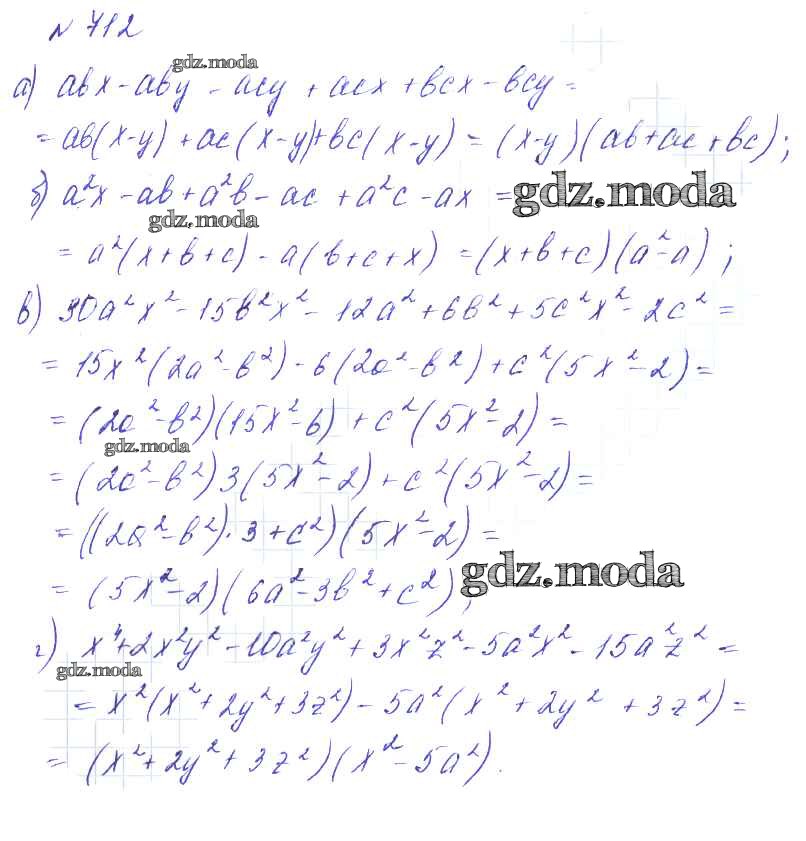 № 712
gdz.moda
а) abx - aby - acy + acx + bcx - bcy =
= ab(x-y) + ac(x-y) + bc(x-y) = (x-y)(ab+ac+bc);
б) a²x - ab + a²b - ac + a²c - ax =
gdz.moda
gdz.moda
= a²(x+b+c) - a(b+c+x) = (x+b+c)(a²-a);
в) 30a²x² - 15b²x² - 12a² + 6b² + 5c²x² - 2c² =
= 15x²(2a²-b²) - 6(2a²-b²) + c²(5x²-2) =
= (2a²-b²)(15x²-6) + c²(5x²-2) =
gdz.moda
= (2a²-b²)3(5x²-2) + c²(5x²-2) =
= ((2a²-b²)·3+c²)(5x²-2) =
= (5x²-2)(6a²-3b²+c²);
gdz.moda
г) x⁴+2x²y² - 10a²y² + 3x²z² - 5a²x² - 15a²z² =
gdz.moda
= x²(x²+2y²+3z²) - 5a²(x²+2y²+3z²) =
= (x²+2y²+3z²)(x²-5a²).